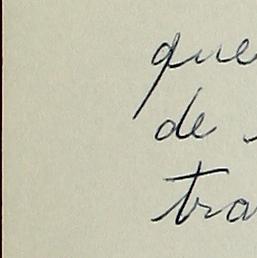 que
de
tra